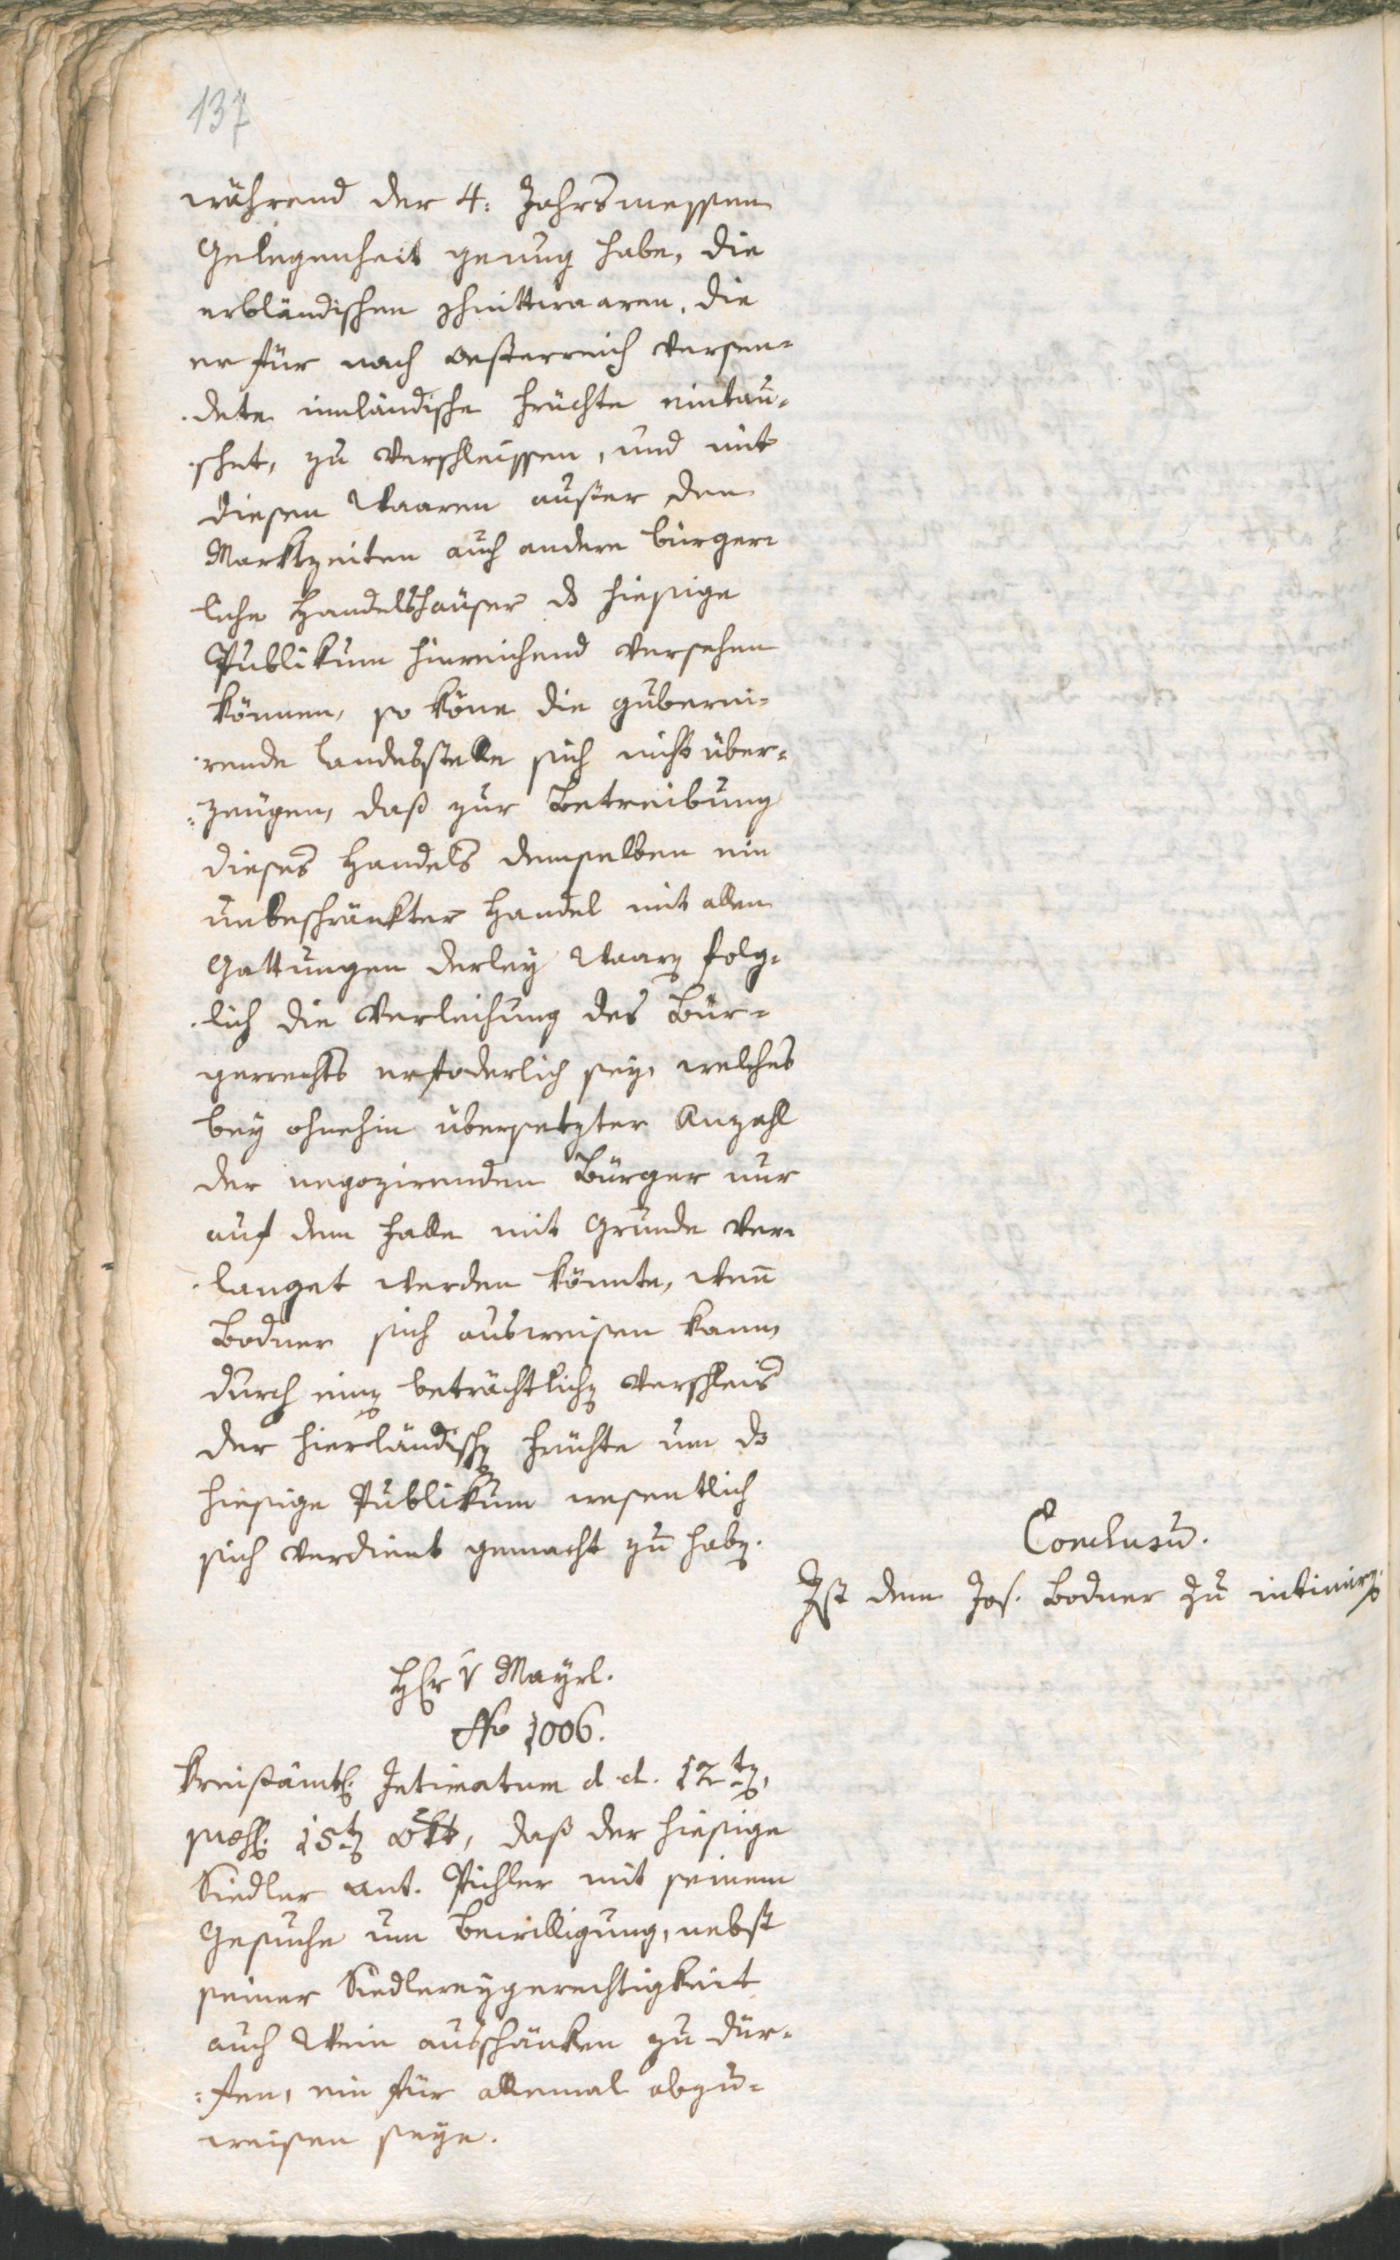 137
während der 4: Jahrsmessen
Gelegenheit genug habe, die
erbländischen Schnittwaaren, die
er für nach Oesterreich versen=
dete innländische Früchte eintau=
schet, zu verschleissen, und mit
diesen Waaren außer den
Marktzeiten auch andere bürger=
liche Handelshäuser ds hiesige
Publikum hinreichend versehen
können, so köne die guberni=
rende Landesstelle sich nicht über=
=zeugen, daß zur Betreibung
dieses Handels demselben ein
unbeschränkter Handel mit allen
Gattungen derley Waaren folg=
lich die Verleihung des Bür=
gerrechts erfoderlich sey, welches
bey ohnehin übersetzter Anzahl
der negozirenden Bürger nur
auf dem Falle mit Grunde ver=
langet werden könnte, wenn
Bodner sich ausweisen kann,
durch einen beträchtlichen Verschleis
der hierländischen Früchte um ds
hiesige Publikum wesentlich
sich verdient gemacht zu haben.
Conclusum.
Ist dem Jos. Bodner zu intimiren.
Hr v Mayrl.
No 1006.
Kreisämtl. Intimatum d. d. 12ten,
präs. 15ten Okt, daß der hiesige
Siedler Ant. Pichler mit seinem
Gesuche um Bewilligung, nebst
seiner Siedlereygerechtigkeit
auch Wein ausschänken zu dür=
=fen, ein für allemal abzu=
weisen seye.